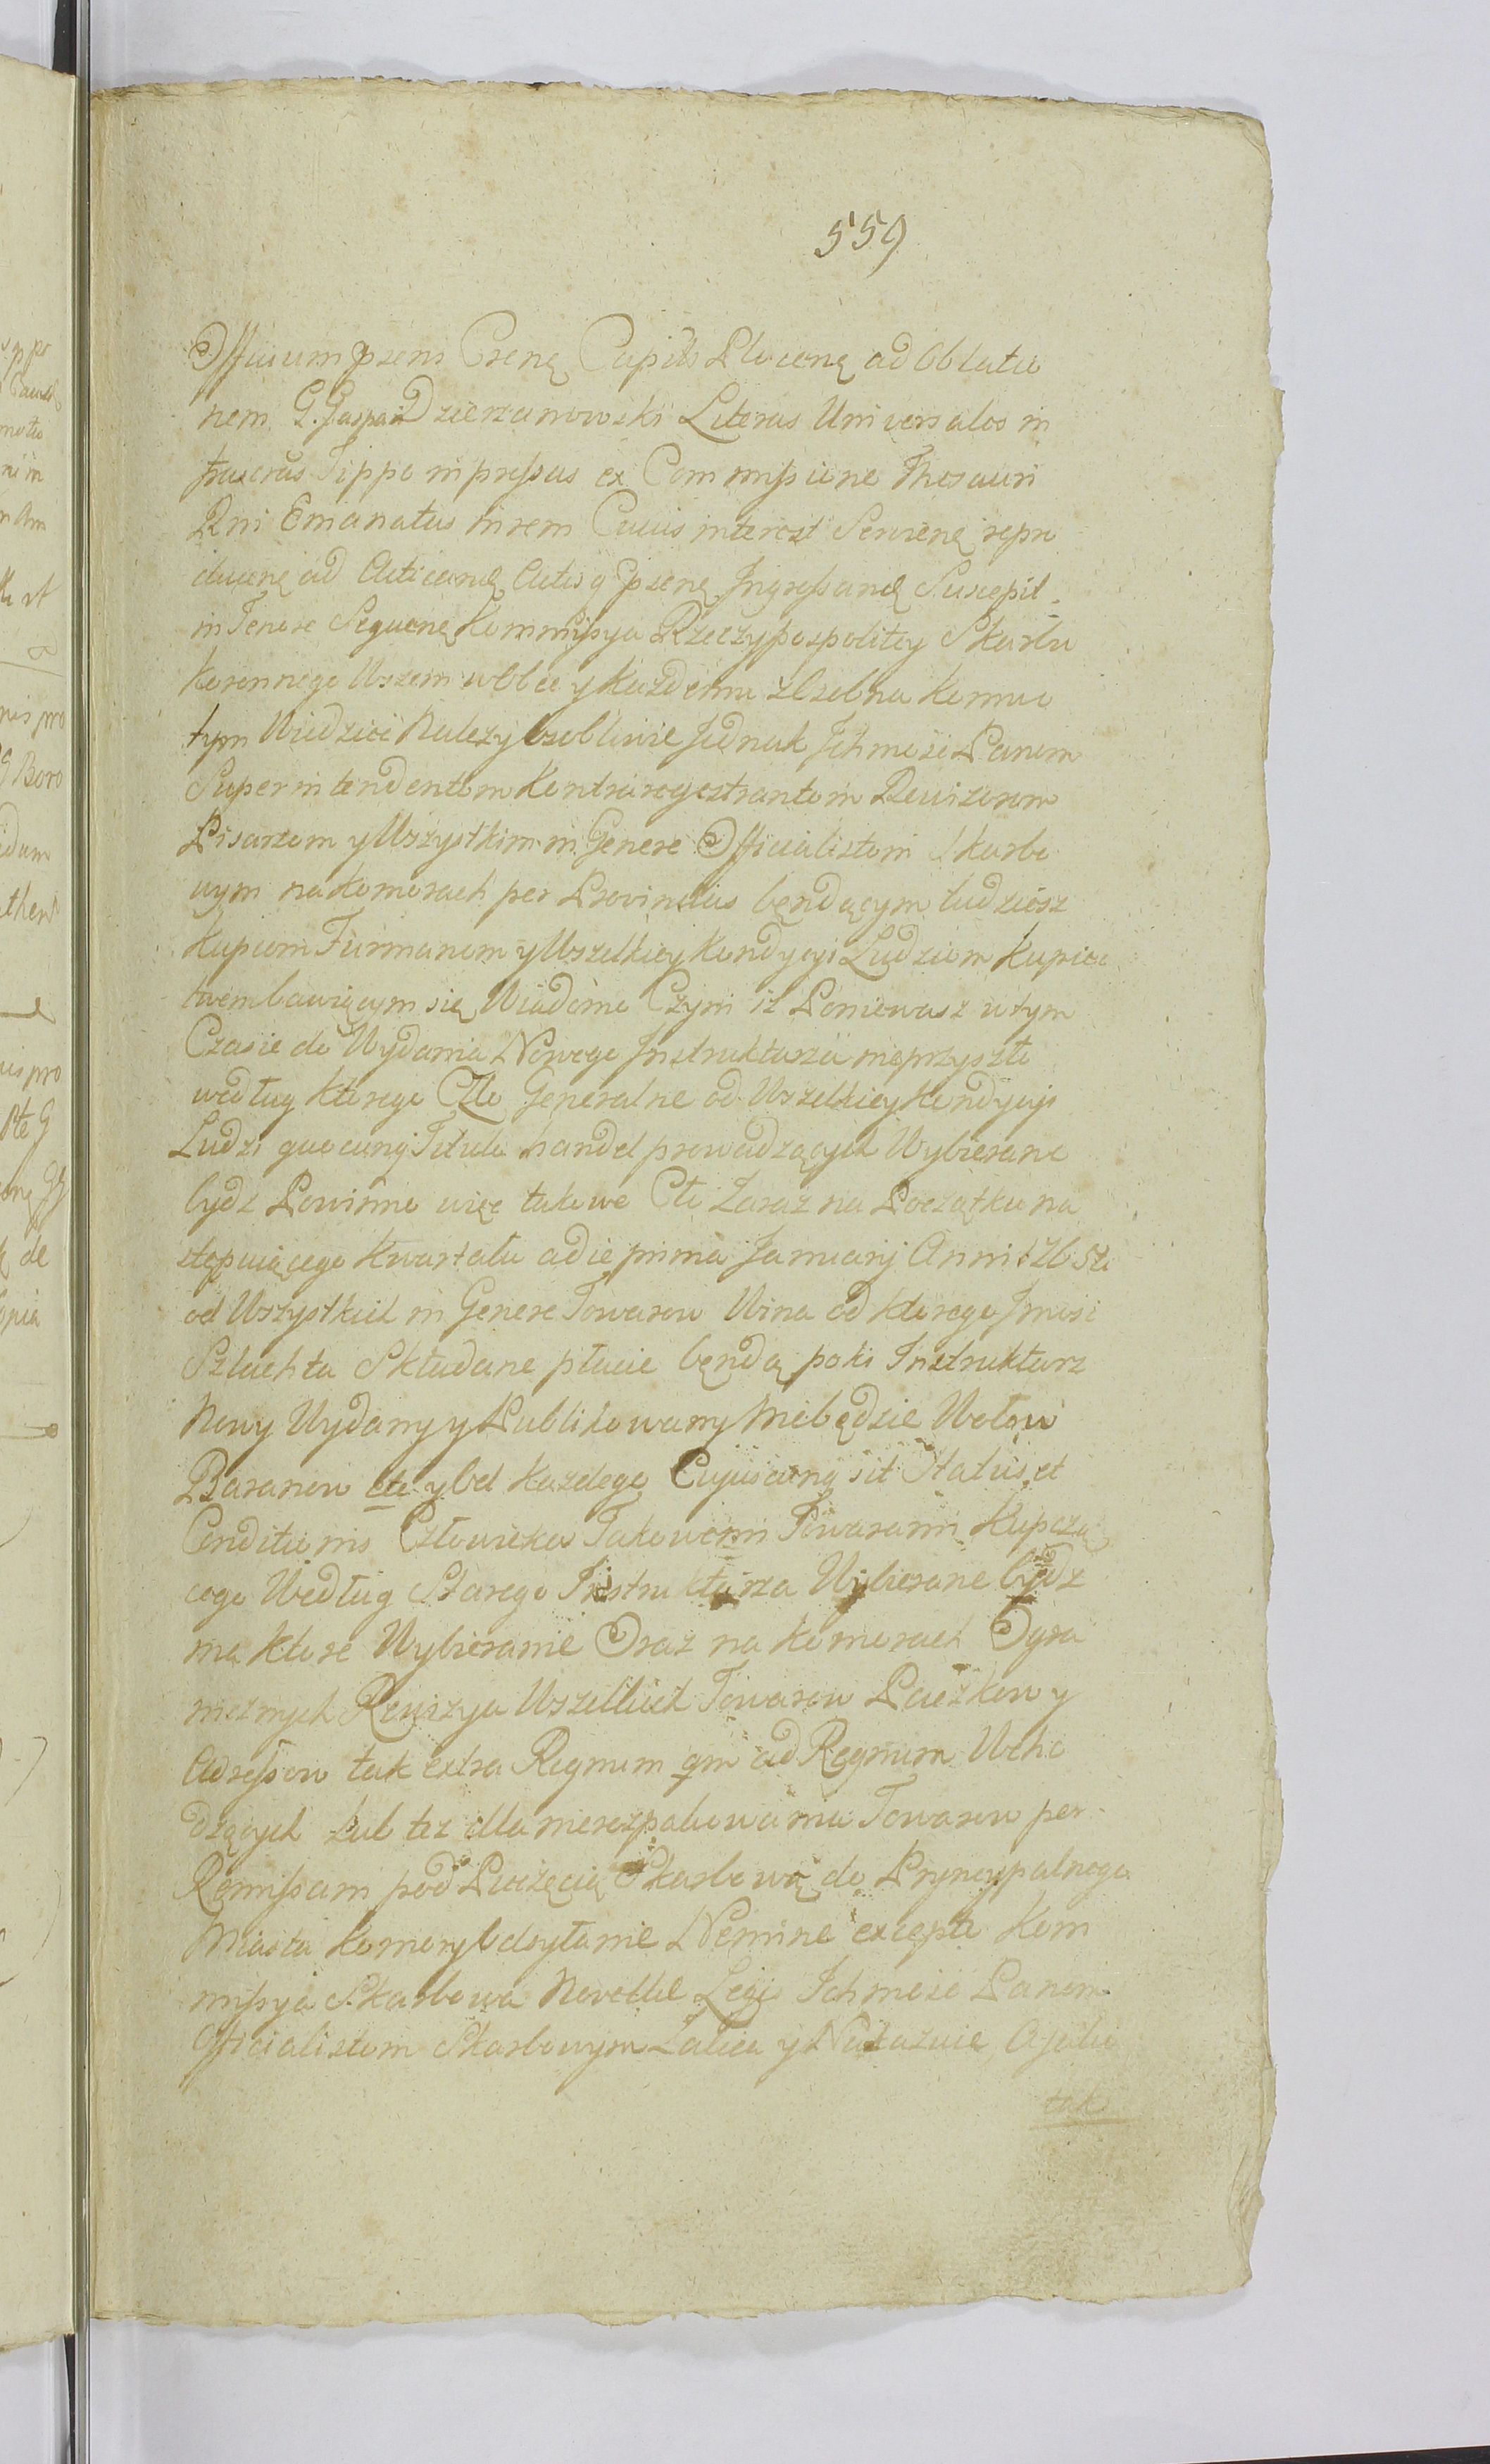 559
Officium psens Csenę Capitis Plocenę ad Oblatio
nem G. Gaspari Dzierzanowski Literas Universales in
fraxeras Tippo inpressas ex Commissione Thesauri
Rni Emanatas in rem Cuius interest Servienę repro
ducenę ad Acticand Actisq psenę Ingrossand Suscepit
in Tenore Sequenę Kommissya Rzeczypospolitey Skarbu
Koronnego Wszem wobec y Każdemu z Osobna Komu o
tym Wiedzieć Nalezy Osobliwie Jednak Ichmość Panom
Superintendentom Kontraregestrantom Rewizorom
Pisarzom y Wszystkim in Genere Officialistom Skarbo
wym na Komorach per Provincias będącym tudziesz
Kupcom Furmanom y Wszelkiey Kondycyi Ludziom Kupiec
twem bawiącym się Wiadomo Czyni iż Poniewasz w tym
Czasie do Wydania Nowego Instruktarza nieprzyszło
według ktorego Cło Generalne od Wszelkiey Kondycyi
Ludzi quocunq Titulo handel prowadzących Wybierane
bydz Powinno więc takowe Cło Zaraz na Początku na
stępuiącego Kwartału a die prima Januarij Anni 1765to
od Wszystkich in Genere Towarow Wina od ktorego Jmość
Szlachta Składane płacić bendą poki Instruktarz
Nowy Wydany y Publikowany niebędzie Wołow
Baranow etc y Od Kazdego Cujuscunq sit Status et
Conditionis Człowieka Takowemi Towarami Kupczą
cego Według Starego Instruktarza Wybierane bydz
ma ktore Wybieranie Oraz na Komorach Ogra
nicznych Rewizya Wszelkich Towarow Paczkow y
Adressow tak extra Regnum qm ad Regnum Wcho
dzących Lub tez dla nierozpakowania Towarow per
Remissam pod Pieczęcią Skarbową do Pryncypalnego
Miasta Komory Odsyłanie Nemine excepto Kom
missya Skarbowa Novellae Legis Ichmość Panom
Officialistom Skarbowym Zaleca y Nakazuie A jako
tak